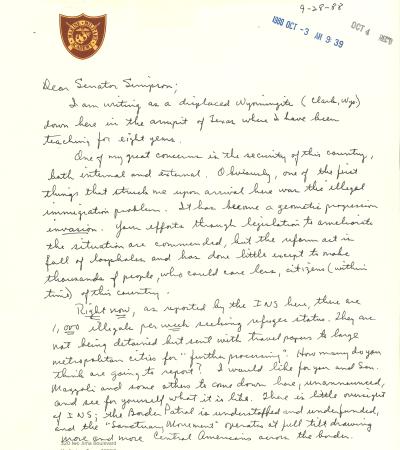 9-28-88
1988 OCT -3 AM 9:39
OCT 4 REC'D
Dear Senator Simpson;
I am writing as a displaced Wyomingite (Clark, Wyo)
down here in the armpit of Texas where I have been
teaching for eight years.
One of my great concerns is the security of this country,
both internal and external. Obviously, one of the first
things that struck me upon arrival here was the illegal
immigration problem. It has become a geometric progression
invasion. Your efforts through legislation to ameliorate
the situation are commended, but the reform act is
full of loopholes and has done little except to make
thousands of people, who could care less, citizens (within
time) of this country.
Right now, as reported by the INS here, there are
1,000 illegals per week seeking refugee status. They are
not being detained but sent with travel papers to large
metropolitan cities for "further processing". How many do you
think are going to report? I would like for you and Sen.
Mazzoli and some others to come down here, unannounced,
and see for yourself what it is like. There is little oversight
of INS; the Border Patrol is understaffed and underfunded,
and the "Sanctuary Movement" operates at full tilt drawing
more and more Central Americans across the border.
320 Iwo Jima Boulevard